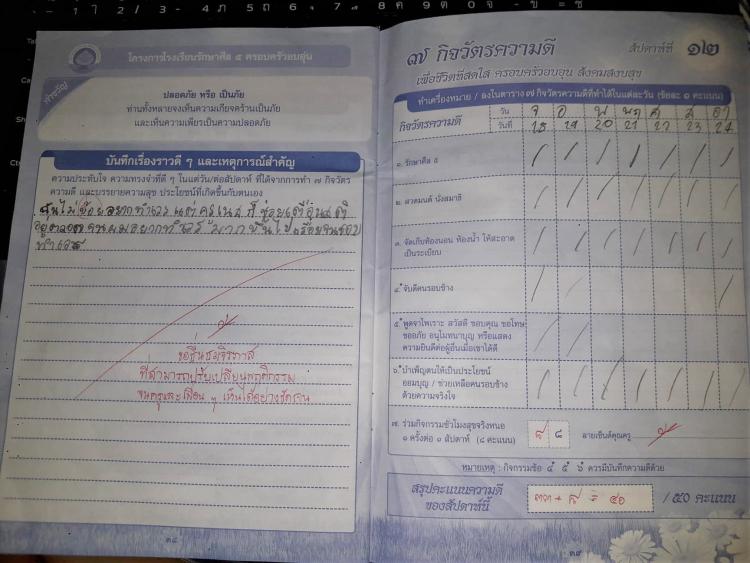 โครงการโรงเรียนรักษาศีล ๕ ครอบครัวอบอุ่น
ปลอดภัย หรือ เป็นภัย
ท่านทั้งหลายจงเห็นความเกียจคร้านเป็นภัย
และเห็นความเพียรเป็นความปลอดภัย
บันทึกเรื่องราวดี ๆ และเหตุการณ์สำคัญ
ความประทับใจ ความทรงจำที่ดี ๆ ในแต่วัน/ต่อสัปดาห์ ที่ได้จากการทำ ๗ กิจวัตร
ความดี และบรรยายความสุข ประโยชน์ที่เกิดขึ้นกับตนเอง
ขอชื่นชมจิรภาส
ที่สามารถปรับเปลี่ยนพฤติกรรม
จนครูและเพื่อน ๆ เห็นได้อย่างชัดเจน
๓๘
๗ กิจวัตรความดี
สัปดาห์ที่ ๑๒
เพื่อชีวิตที่สดใส ครอบครัวอบอุ่น สังคมสงบสุข
ทำเครื่องหมาย / ลงในตาราง ๗ กิจวัตรความดีที่ทำได้ในแต่ละวัน (ข้อละ ๑ คะแนน)
กิจวัตรความดี
วัน จ อ พ พฤ ศ ส อา
วันที่ 18 19 20 21 22 23 24
๑. รักษาศีล ๕
๒. สวดมนต์ นั่งสมาธิ
๓. จัดเก็บห้องนอน ห้องน้ำ ให้สะอาด
เป็นระเบียบ
๔. จับดีคนรอบข้าง
๕. พูดจาไพเราะ สวัสดี ขอบคุณ ขอโทษ
ขออภัย อนุโมทนาบุญ หรือแสดง
ความยินดีต่อผู้อื่นเมื่อเขาได้ดี
๖. บำเพ็ญตนให้เป็นประโยชน์
ออมบุญ / ช่วยเหลือคนรอบข้าง
ด้วยความจริงใจ
๗. ร่วมกิจกรรมชั่วโมงสุขจริงหนอ
๑ ครั้งต่อ ๑ สัปดาห์ (๘ คะแนน)
๘ ๘
ลายเซ็นต์คุณครู
หมายเหตุ : กิจกรรมข้อ ๔ ๕ ๖ ควรมีบันทึกความดีด้วย
สรุปคะแนนความดี
ของสัปดาห์นี้
/ ๕๐ คะแนน
๓๙